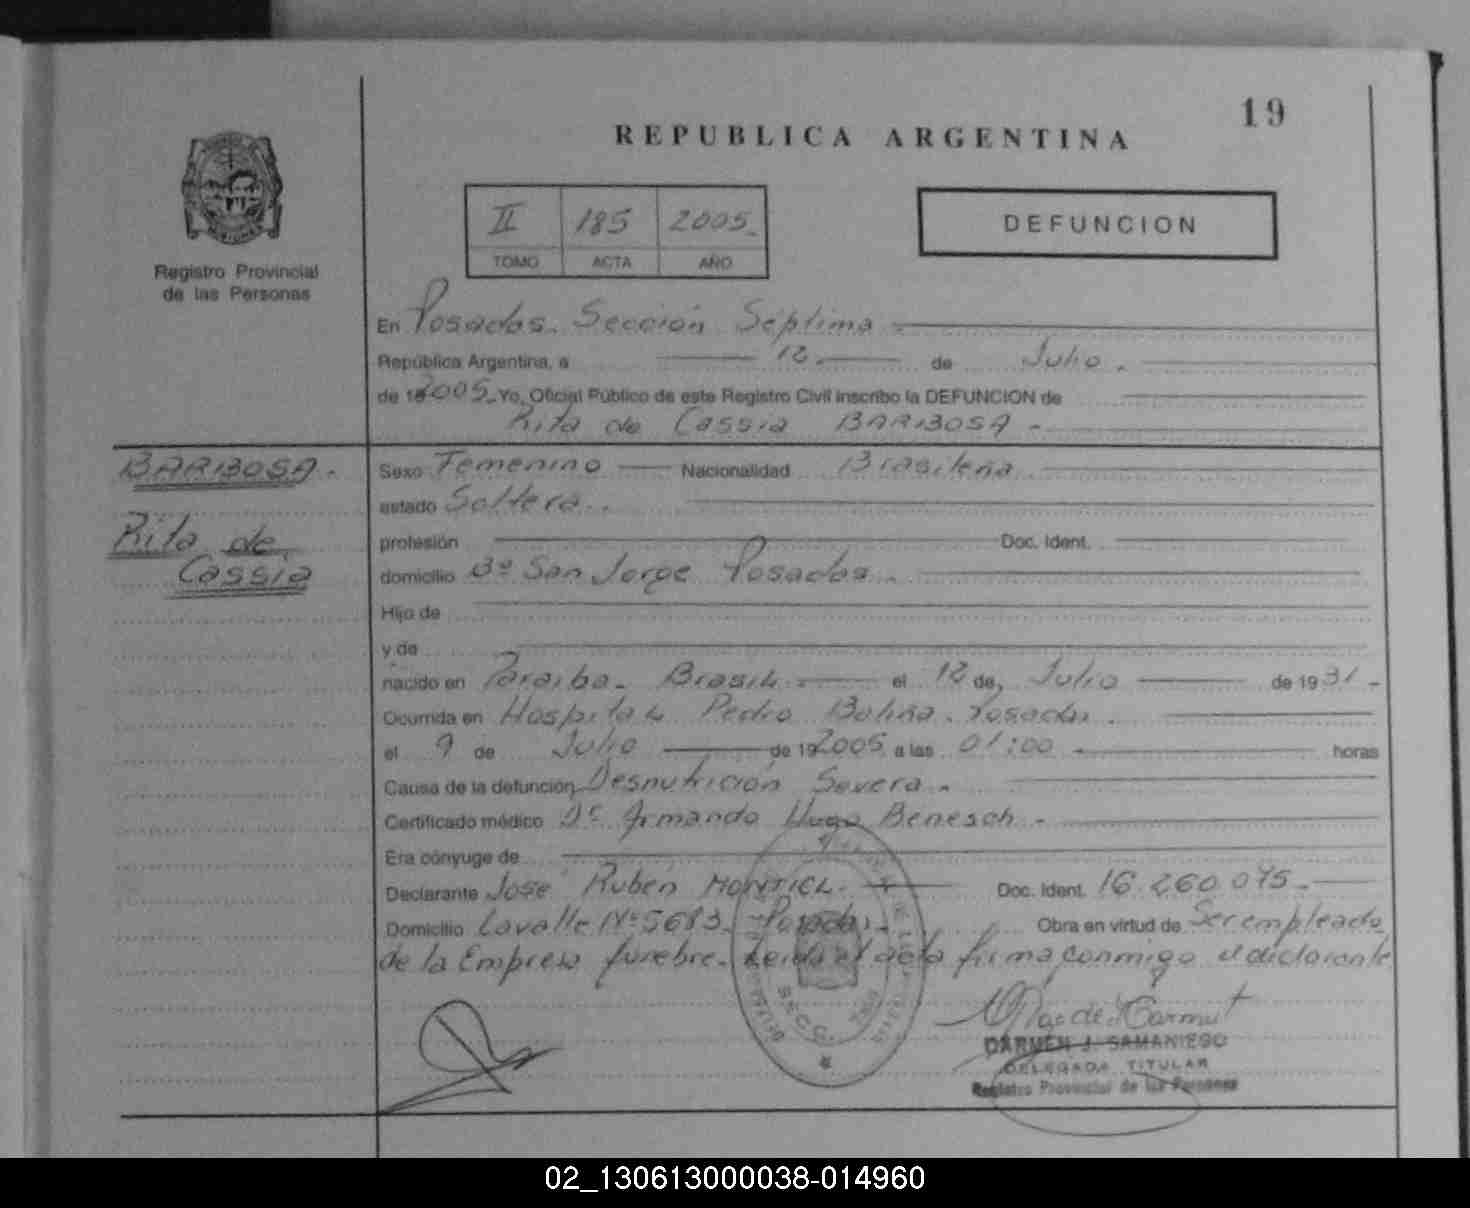 19
REPUBLICA ARGENTINA
II 185 2005
TOMO ACTA AÑO
DEFUNCION
MISIONES
Registro Provincial
de las Personas
En Posadas. Sección Séptima
República Argentina, a 12 de Julio.
de 2005. Yo, Oficial Público de este Registro Civil inscribo la DEFUNCION de
Rita de Cassia BARBOSA
BARBOSA.
Rita de
Cassia
Sexo Femenino Nacionalidad Brasileña
estado Soltera.
profesión Doc. Ident.
domicilio Bº San Jorge Posadas.
Hijo de
y de
nacido en Paraiba. Brasil. el 12 de, Julio de 1931
Ocurrida en Hospital Pedro Baliña. Posadas.
el 9 de Julio de 192005 a las 01:00 horas
Causa de la defunción Desnutrición Severa.
Certificado médico Dr. Armando Hugo Benesch
Era cónyuge de
Declarante José Rubén MONTIEL. Doc. Ident. 16.260.075
Domicilio Lavalle Nº 5683. Posadas. Obra en virtud de Ser empleado
de la Empresa fúnebre. Leida el acta firma conmigo el declarante
SECC.
CARMEN J. SAMANIEGO
DELEGADA TITULAR
Registro Provincial de las Personas
02_130613000038-014960